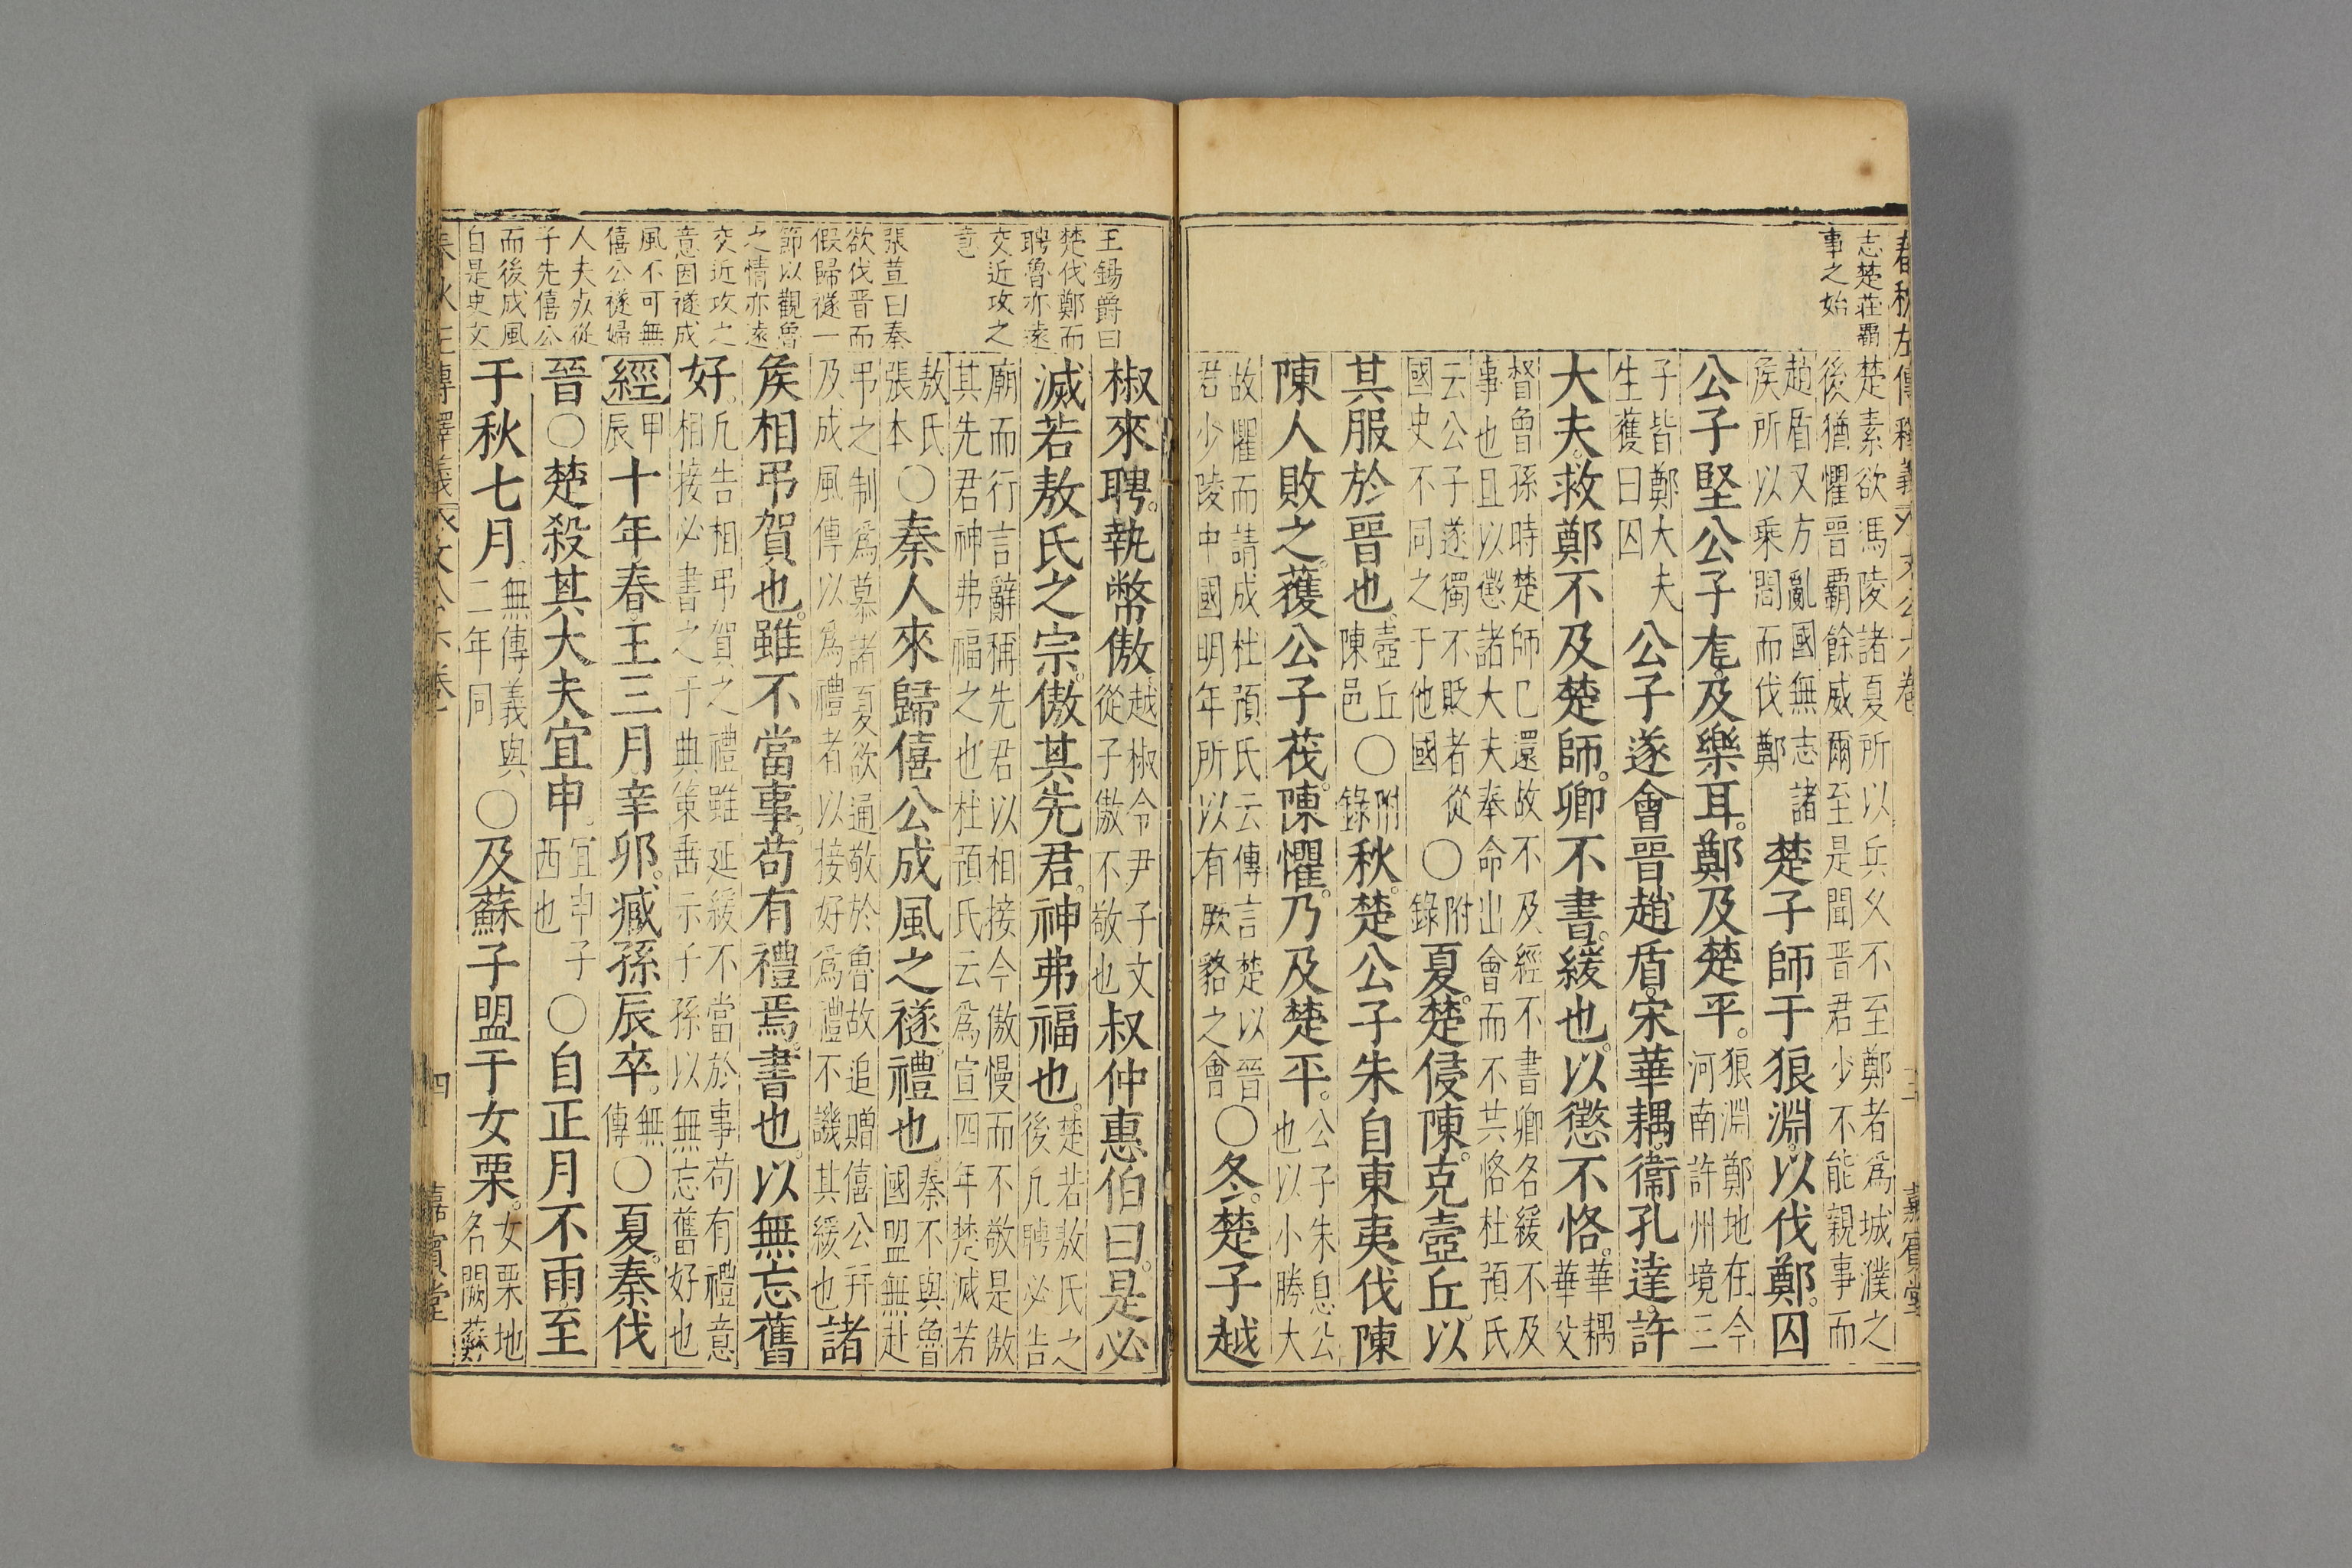 志楚莊霸
事之始
楚素欲馮陵諸夏所以兵乆不至鄭者爲城濮之
後猶懼晉霸餘威爾至是聞晋君少不能親事而
趙盾又方亂國無志諸
矦所以乘間而伐鄭
楚子師于狼淵。以伐鄭。囚
公子堅公子尨。及樂耳。鄭及楚平。
狼淵鄭地在今
河南許州境三
子皆鄭大夫
生獲曰囚
公子遂會晉趙盾。宋華耦。衞孔達。許
大夫。救鄭不及楚師。卿不書。緩也。以懲不恪。
華耦
華父
督魯孫時楚師已還故不及經不書卿名緩不及
事也且以懲諸大夫奉命出會而不共恪杜預氏
云公子遂獨不貶者從
國史不同之于他國
○
附
錄
夏。楚侵陳。克壺丘。以
其服於晉也。
壺丘
陳邑
○
附
錄
秋。楚公子朱自東夷伐陳
陳人敗之。獲公子茷。陳懼。乃及楚平。
公子朱息公
也以小勝大
故懼而請成杜預氏云傳言楚以晉
君少陵中國明年所以有厥貉之會
○冬。楚子越
王錫爵曰
楚伐鄭而
聘魯亦遠
交近攻之
意
張萱曰秦
欲伐晋而
假歸襚一
節以觀魯
之情亦遠
交近攻之
意因襚成
風不可無
僖公襚婦
人夫𠫵從
子先僖公
而後成風
自是史文
椒來聘。執幣傲。
越椒令尹子文
從子傲不敬也
叔仲惠伯曰。是必
滅若敖氏之宗。傲其先君。神弗福也。
楚若敖氏之
後凢聘必告
廟而行言辭稱先君以相接今傲慢而不敬是傲
其先君神弗福之也杜預氏云爲宣四年楚滅若
敖氏
張本
○秦人來歸僖公成風之襚。禮也。
秦不與魯
國盟無赴
弔之制爲慕諸夏欲通敬於魯故追贈僖公幷
及成風傳以爲禮者以接好爲禮不譏其緩也
諸
矦相弔賀也。雖不當事。苟有禮焉。書也。以無忘舊
好。
凢告相弔賀之禮雖延緩不當於事苟有禮意
相接必書之于典策垂示子孫以無忘舊好也
經
甲
辰
十年春。王三月辛卯。臧孫辰卒。
無
傳
○夏。秦伐
晉○楚殺其大夫宜申。
宜申子
西也
○自正月不雨至
于秋七月。
無傳義與
二年同
○及蘇子盟于女栗。
女栗地
名闕蘇
四
嘉賓堂